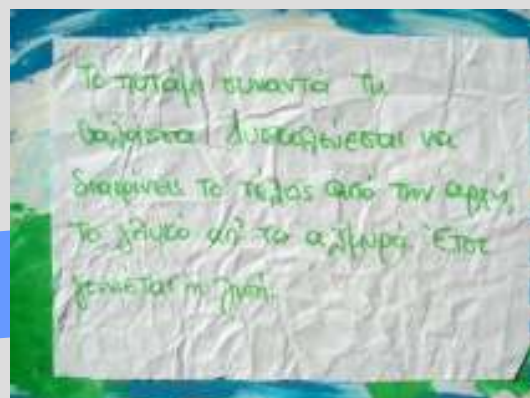 Το ποτάμι συναντά τη
θάλασσα. Δυσκολεύεσαι να
διακρίνεις το τέλος από την αρχή,
το γλυκό απ' το αλμυρό. Έτσι
γεννιέται η ζωή.